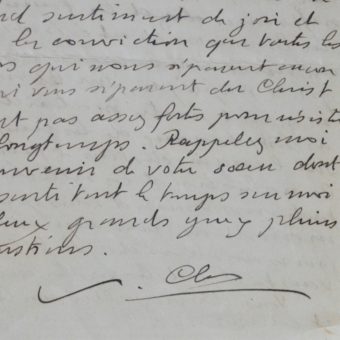 nd sentiment de joie et
la conviction que toutes les
s qui nous séparent encore
ui vous séparent du Christ
nt pas assez fortes pour résiste
longtemps. Rappelez moi
ouvenir de votre soeur dont
sentit tout le temps sur moi
eux grands yeux pleins
estions.